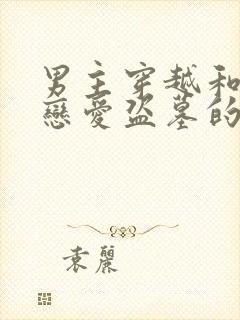 男主穿越和
戀愛盜墓的
袁麗